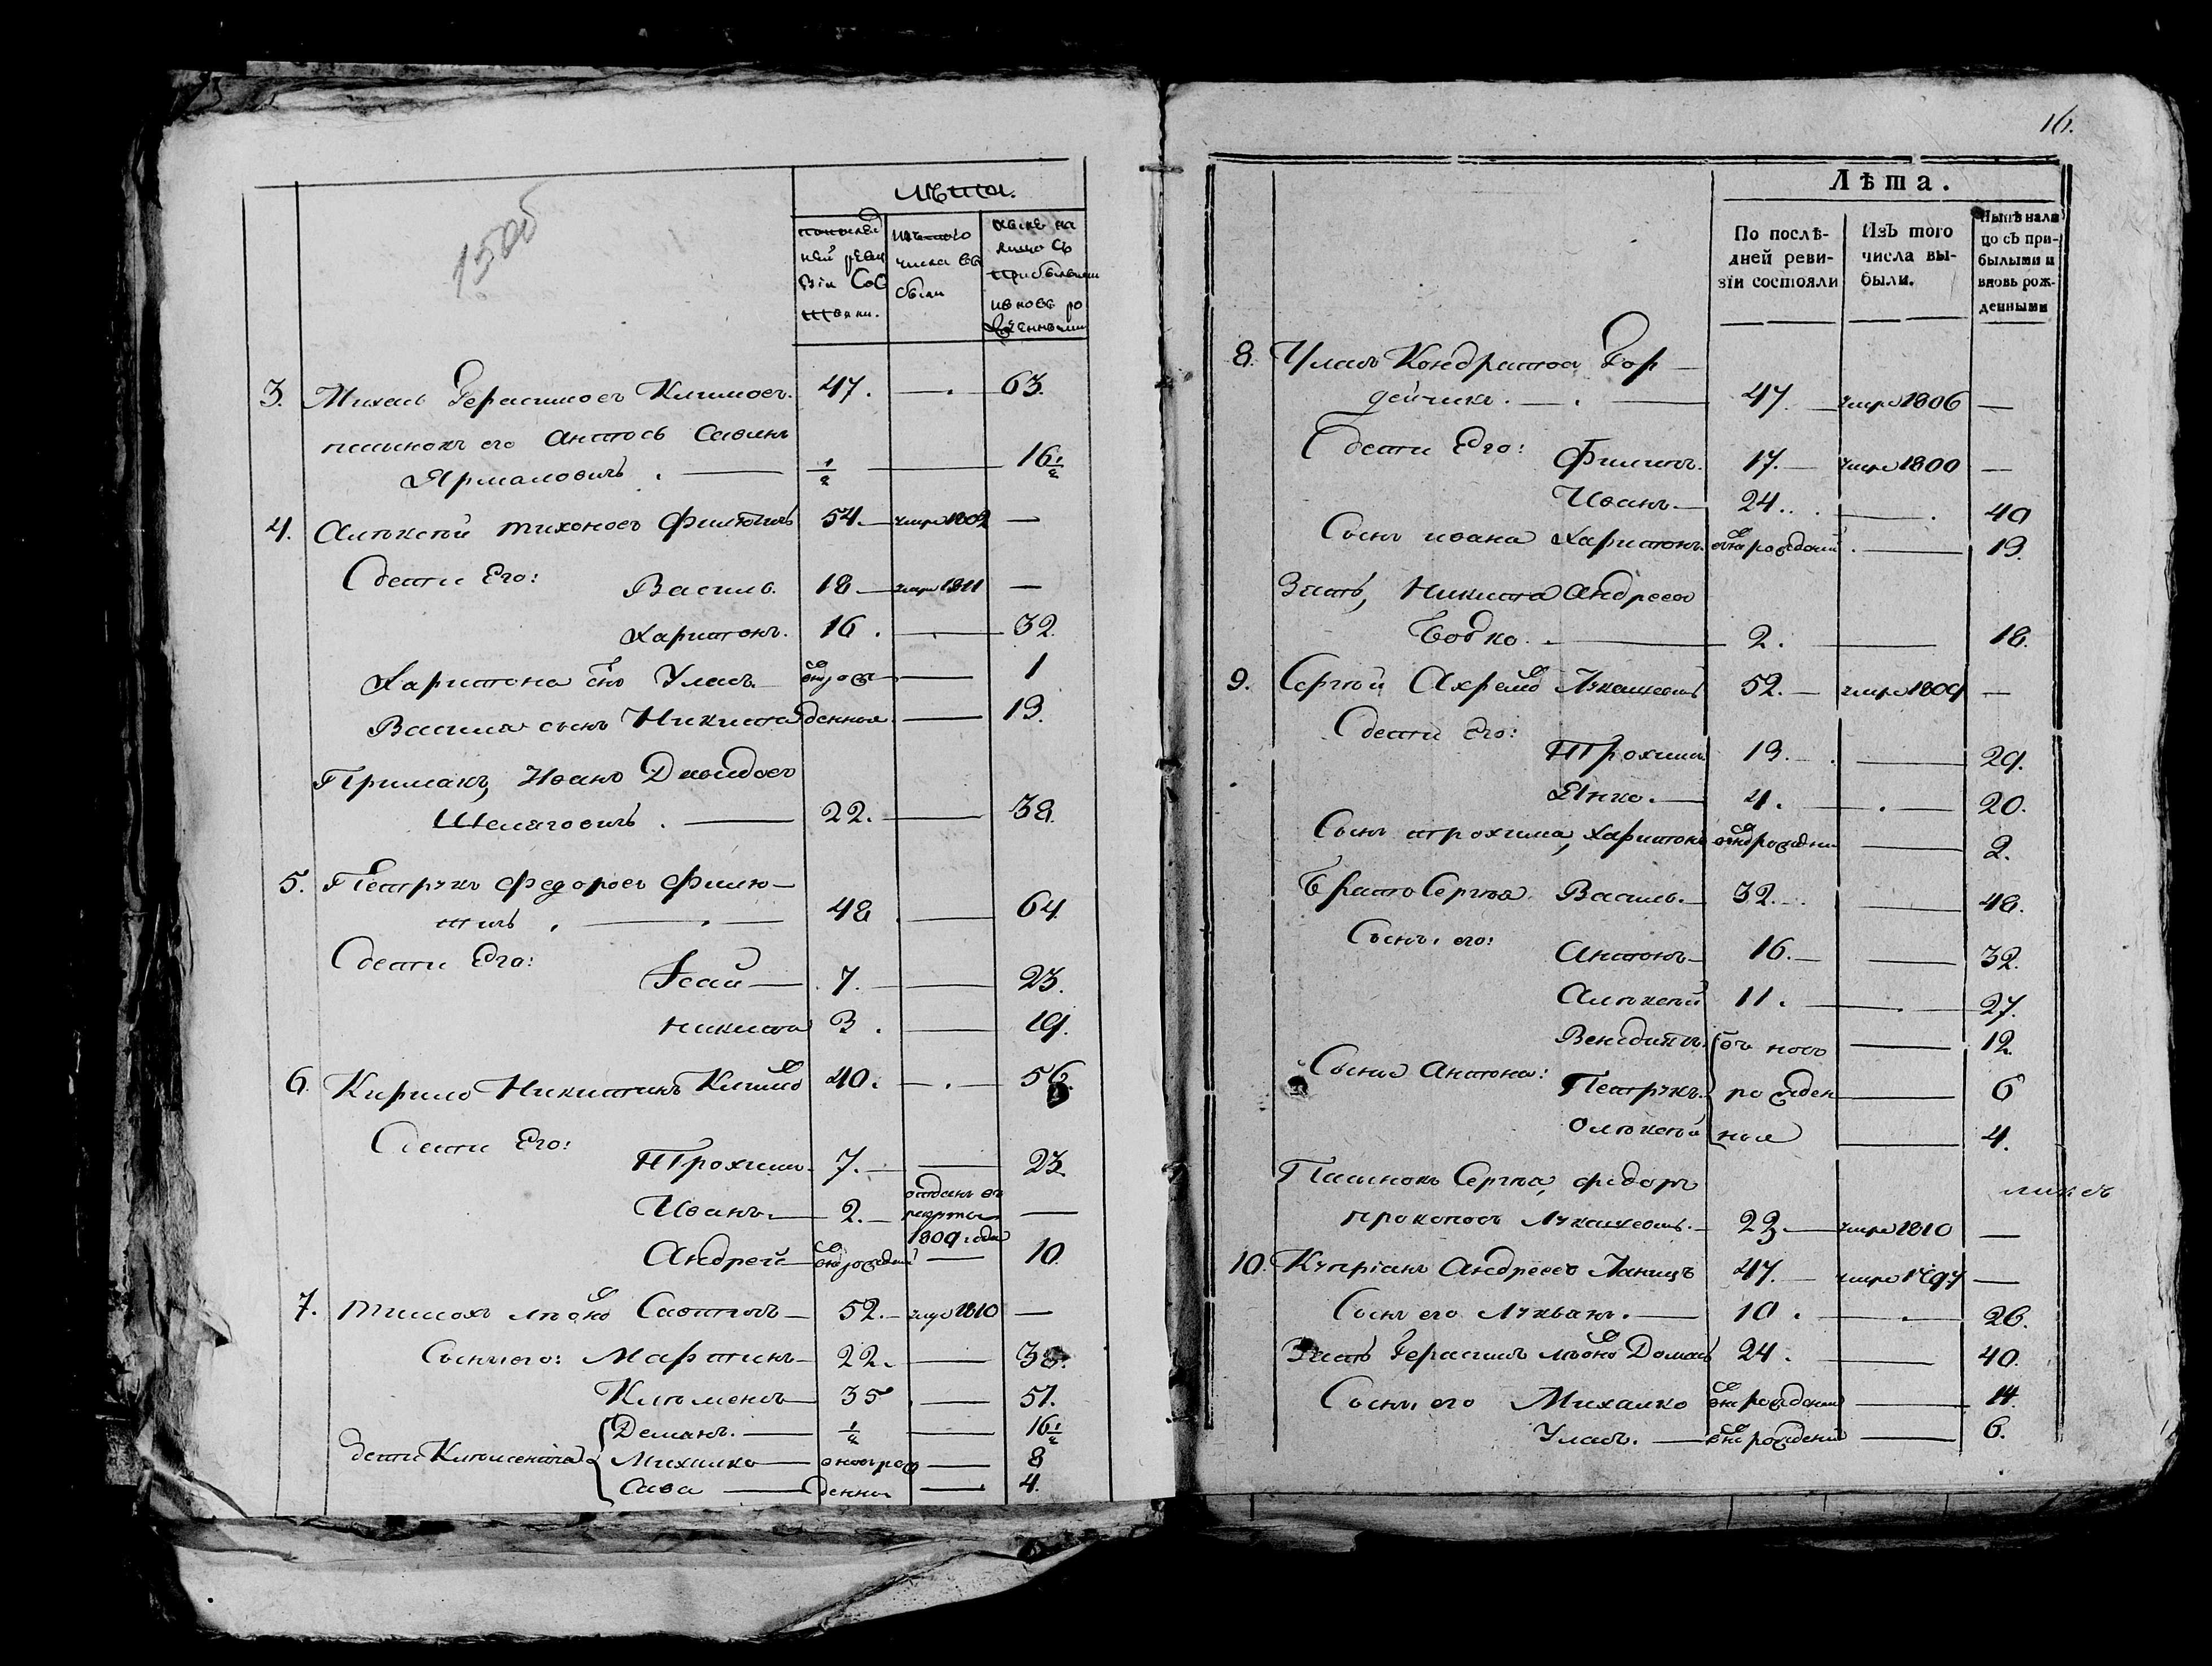 15об
Лѣта.
попослѣд
ней реви
зіи Сос
тояли.
изътого
числа вы
были
ныне на
лицо съ
прибылыми
ивновь ро
жденными
3. Михаль Герасимовъ Климов. 47. — 63.
пасынокъ его Антось Савинъ
Ярмаловичь. — 1/2 — 16 1/2
4. Алѣксѣй тихоновъ Филютичь 54. — умре 1802 —
дети Его: Василь. 18 — умре 1811 —
Харитонъ. 16. — 32.
Харитона снъ Уласъ — внврож — 1
Васила сынъ Никита денныя — 13.
Примакъ, Иванъ Давидовъ
Шелаговичь. — 22. — 38.
5. Петрукъ Федоровъ Филю-
тичь. — 48 — 64.
дети Его: Гсай — 7. — 23.
никита 3. — 19.
6. Кирило Никитинъ Климов 40. — 56.
дети Его: Трохимъ. 7. — 23.
Иванъ — 2. — отданъ въ рекруты 1809 года —
Андрей — внврожденый — 10.
7. тимохъ лѣонов Савтюсь — 52. — умре 1810 —
Сыныего: Мартинъ — 22. — 38.
Клѣменъ — 35 — 51.
дети Клѣменыя Деманъ. — 1/2 — 16 1/2
Михалко — вноврож — 8
Сава — денны — 4.
16.
Лѣта.
По послѣ-
дней реви-
зіи состояли
Изъ того
числа вы-
были.
Нынѣ нали
цо съ при-
былыми и
вновь рож-
денными
8. Уласъ Кондратов Гор-
дейчикъ. — 47 — умре 1806 —
дети Его: Филипъ. 17. — умре 1800 —
Иванъ — 24. — 40
Сынъ ивана Харитонъ. внврожденый. — 13.
Зять, Никита Андреев
Бобко. — 2. — 18.
9. Сергѣй Ахремов Лукашевичь 52. — умре 1809 —
дети Его: Трохимъ 13. — 29.
Янко. — 4. — 20.
Сынъ трохима, Харитонъ внврожденый — 2.
Братъ Сергѣя. Василь. — 32. — 48.
Сыны его: Антонъ — 16. — 32.
Алѣксѣй 11. — 27.
Венедитъ. въ новь — 12.
Сыныя Антона: Петрукъ. рожден — 6
Олѣксѣй ныя — 4.
Пасынокъ Сергѣя, Федоръ
прокоповъ Лукашевичь. — 23 — умре 1810 —
10. Купріянъ Андреевъ Ланицъ 47. — умре 1797 —
Сынъ его Лукьянъ. — 10. — 26.
Зять Герасимъ лѣонов Домась 24. — 40.
Сыны его Михалко внврожденый — 14.
Уласъ. — внврожденый — 6.